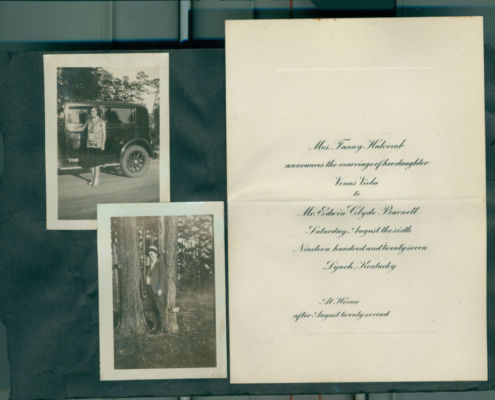 Mrs. Fanny Halcomb
announces the marriage of her daughter
Venus Viola
to
Mr. Edwin Clyde Barnett
Saturday, August the sixth
Nineteen hundred and twenty-seven
Lynch, Kentucky
At Home
after August twenty-second